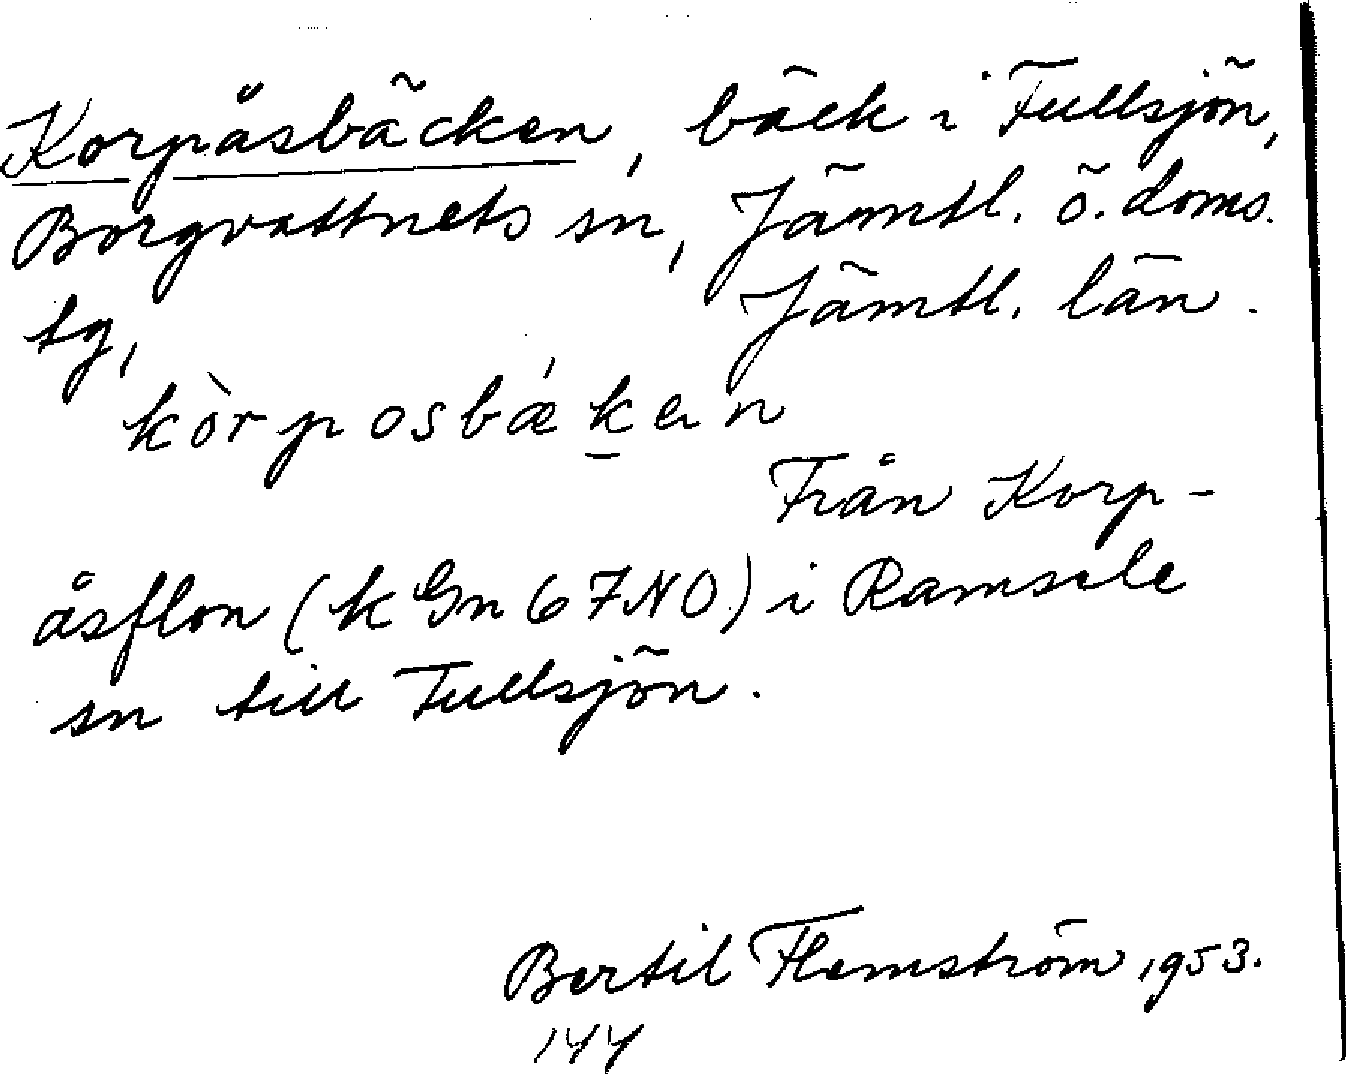 Korpåsbäcken, bäck i Fullsjön,
Borgvattnets sn, Jämtl. ö. doms.
tg, Jämtl. län.
kòrposbækεn
Från Korp-
åsflon (k Gn 67NO) i Ramsele
sn till Fullsjön.
Bertil Flemström, 1953.
144